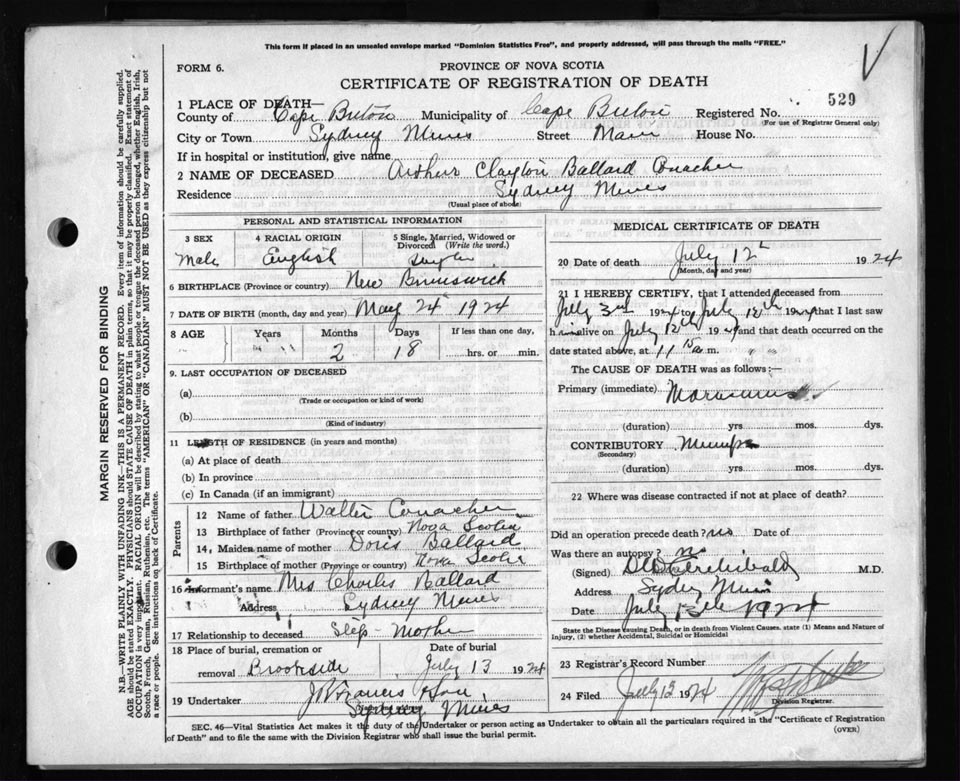 This form if placed in an unsealed envelope marked "Dominion Statistics Free", and properly addressed, will pass through the mails "FREE."
FORM 6.
PROVINCE OF NOVA SCOTIA
CERTIFICATE OF REGISTRATION OF DEATH
529
1 PLACE OF DEATH—
County of Cape Breton Municipality of Cape Breton Registered No.
(For use of Registrar General only)
City or Town Sydney Mines Street Main House No.
If in hospital or institution, give name
2 NAME OF DECEASED Arthur Clayton Ballard Conacher
Residence Sydney Mines
(Usual place of abode)
PERSONAL AND STATISTICAL INFORMATION
3 SEX 4 RACIAL ORIGIN 5 Single, Married, Widowed or Divorced (Write the word.)
Male English Single
6 BIRTHPLACE (Province or country) New Brunswick
7 DATE OF BIRTH (month, day and year) May 24 1924
8 AGE Years Months Days If less than one day,
2 18 hrs. or min.
9. LAST OCCUPATION OF DECEASED
(a)
(Trade or occupation or kind of work)
(b)
(Kind of industry)
11 LENGTH OF RESIDENCE (in years and months)
(a) At place of death
(b) In province
(c) In Canada (if an immigrant)
Parents
12 Name of father Walter Conacher
13 Birthplace of father (Province or country) Nova Scotia
14. Maiden name of mother Doris Ballard
15 Birthplace of mother (Province or country) Nova Scotia
16 Informant's name Mrs Charles Ballard
Address Sydney Mines
17 Relationship to deceased Step Mother
18 Place of burial, cremation or removal Brookside
Date of burial July 13 1924
19 Undertaker J W Francis & Son,
Sydney Mines
MEDICAL CERTIFICATE OF DEATH
20 Date of death July 12 1924
(Month, day and year)
21 I HEREBY CERTIFY, that I attended deceased from
July 3rd 1924 to July 12th 1924 that I last saw
h im alive on July 12th 1924 and that death occurred on
date stated above, at 11 15 a m.
The CAUSE OF DEATH was as follows:—
Primary (immediate) Marasmus
(duration) yrs mos. dys.
CONTRIBUTORY Mumps
(Secondary)
(duration) yrs. mos. dys.
22 Where was disease contracted if not at place of death?
Did an operation precede death? no Date of
Was there an autopsy? n
(Signed) Archibald M.D.
Address Sydney Mines
Date July 1924
State the Disease causing Death, or in death from Violent Causes, state (1) Means and Nature of Injury, (2) whether Accidental, Suicidal or Homicidal
23 Registrar's Record Number
24 Filed July 13 1924
Division Registrar.
SEC. 46—Vital Statistics Act makes it the duty of the Undertaker or person acting as Undertaker to obtain all the particulars required in the "Certificate of Registration
of Death" and to file the same with the Division Registrar who shall issue the burial permit.
(OVER)
MARGIN RESERVED FOR BINDING
N.B.—WRITE PLAINLY WITH UNFADING INK—THIS IS A PERMANENT RECORD. Every item of information should be carefully supplied.
AGE should be stated EXACTLY. PHYSICIANS should STATE CAUSE OF DEATH in plain terms, so that it may be properly classified. Exact statement of
OCCUPATION is very important. RACIAL ORIGIN will be described by stating to what people or tongue the deceased person belonged, whether English, Irish,
Scotch, French, German, Russian, Ruthenian, etc. The terms "AMERICAN" or "CANADIAN" MUST NOT BE USED as they express citizenship but not
a race or people. See instructions on back of Certificate.